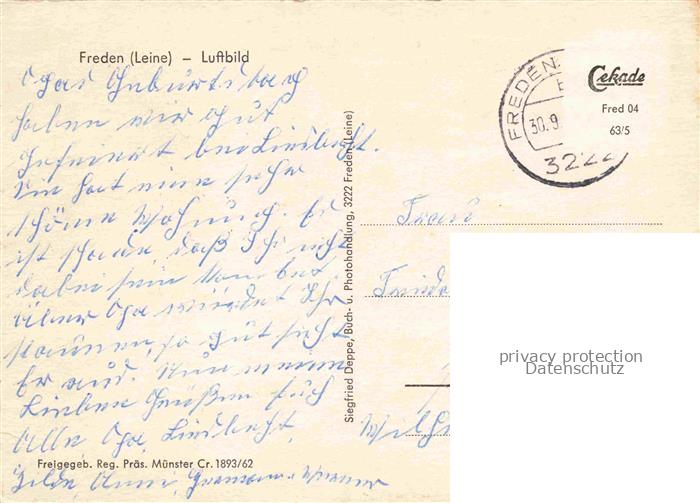 Freden (Leine) – Luftbild
Opas Geburtstag
haben wir gut
gefeiert bei Liesbeth.
Sie hat eine sehr
schöne Wohnung. Es
ist schade, daß Ihr nicht
dabei sein konntet.
Über Opa würdet Ihr
staunen, so gut sieht
Er aus. Nun meine
Lieben Grüßen Euch
Alle Opa, Liesbeth,
Hilde, Anni, Hermann Werner
Freigegeb. Reg. Präs. Münster Cr. 1893/62
Siegfried Deppe, Buch- u. Photohandlung, 3222 Freden (Leine)
FREDEN
30.9
3222
Cekade
Fred 04
63/5
Frau
privacy protection
Datenschutz